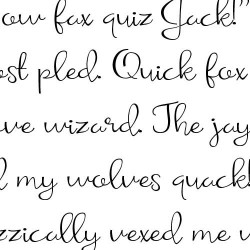 ow fax quiz Jack!"
ost pled. Quick fox
ve wizard. The jay
my wolves quack!
zzically vexed me